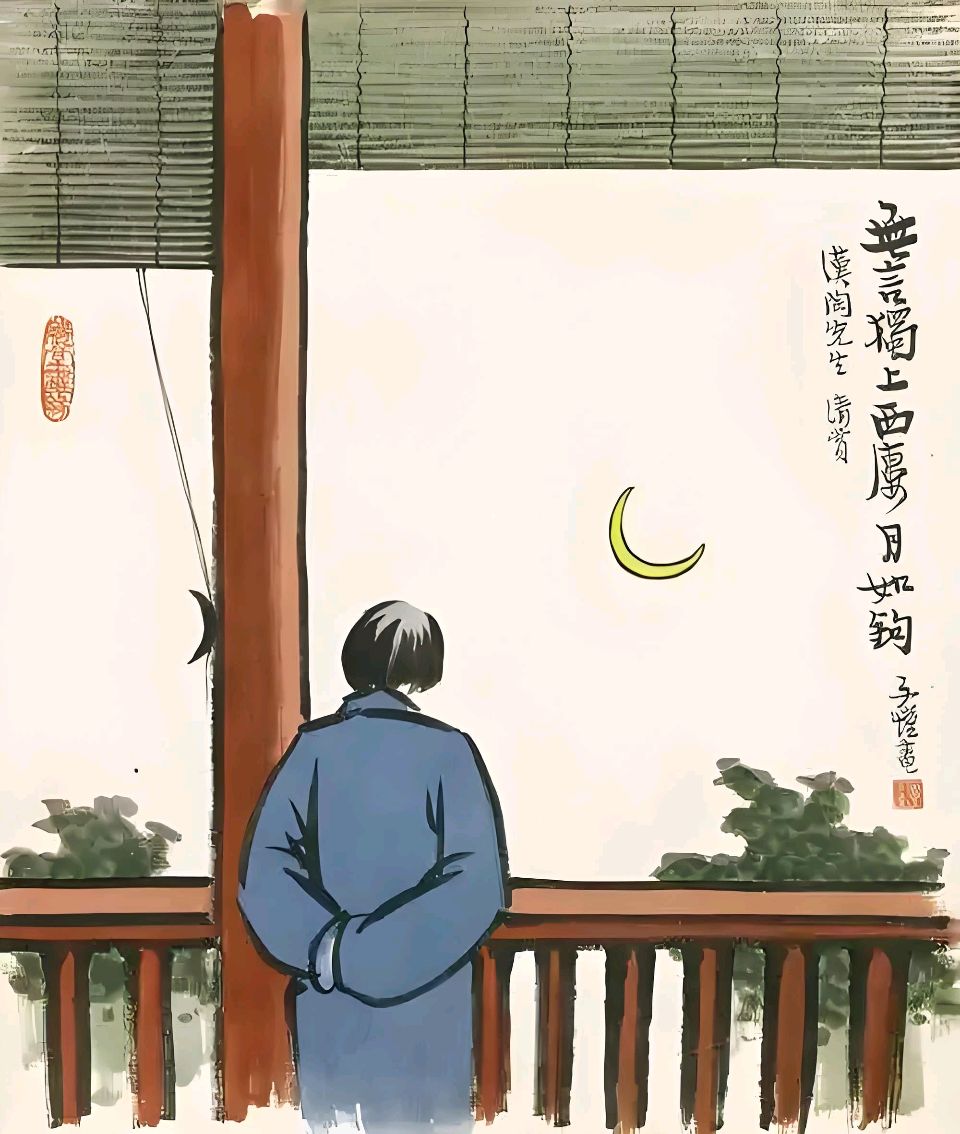 無言獨上西廔月如鈎
子愷畫
漢陶先生 清賞